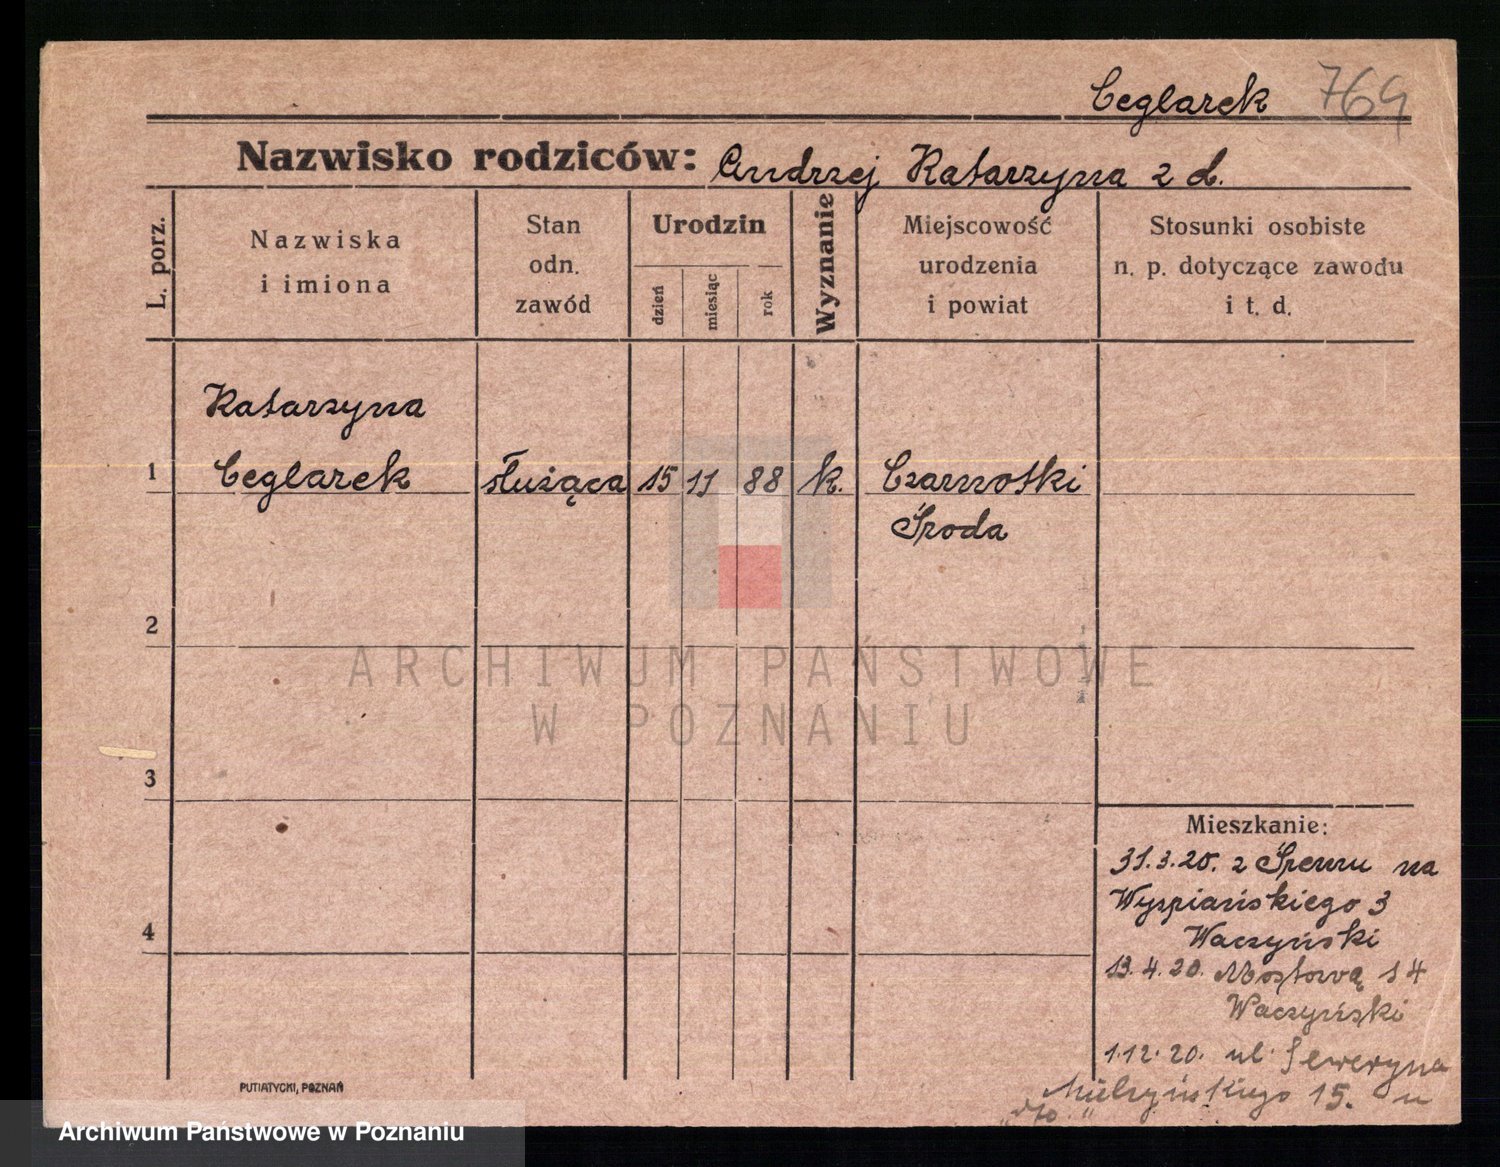 Ceglarek 769
Nazwisko rodziców: Andrzej Katarzyna 2 d.
L. porz.
Nazwiska
i imiona
Stan
odn.
zawód
Urodzin
dzień
miesiąc
rok
Wyznanie
Miejscowość
urodzenia
i powiat
Stosunki osobiste
n. p. dotyczące zawodu
i t. d.
Katarzyna
1 Ceglarek służąca 15 11 88 k. Czarnotki
Środa
2
ARCHIWUM PAŃSTWOWE
W POZNANIU
3
Mieszkanie:
31.3.20. z Śremu na
Wyspiańskiego 3
Waczyński
4
13.4.20. Mostowa 14
Waczyński
1.12.20. ul. Seweryna
Mielżyńskiego 15.
PUTIATYCKI, POZNAŃ
Archiwum Państwowe w Poznaniu